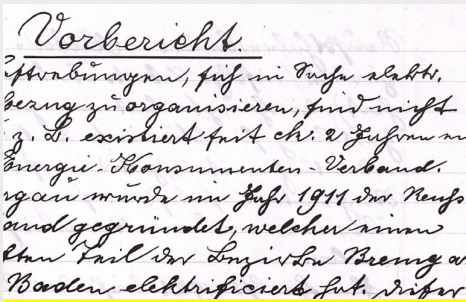 Vorbericht.
strebungen, sich in Sache elektr.
bezug zu organisieren, sind nicht
z. B. existiert seit ca. 2 Jahren
Energie-Konsumenten-Verband.
rgau wurde im Jahr 1911 der Reuss
and gegründet, welcher einen
tten Teil der Bezirke Bremg
Baden elektrificiert hat. dieser